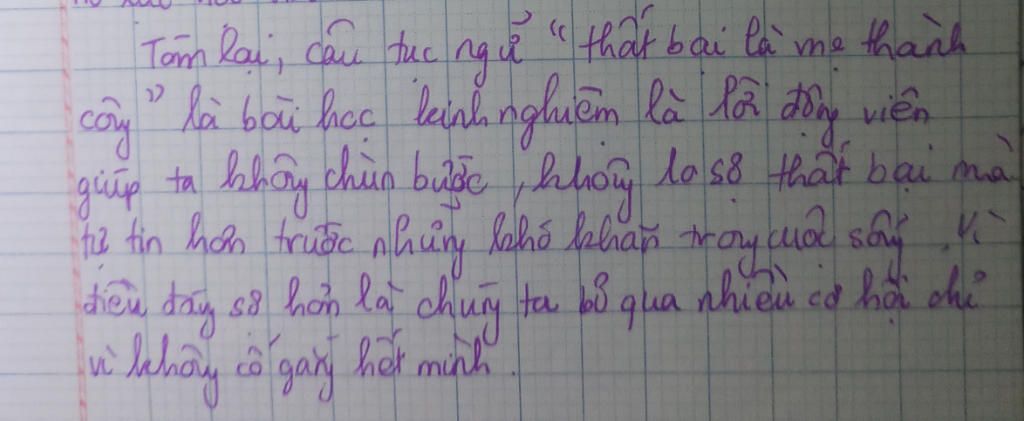 Tóm lại, câu tục ngữ "thất bại là mẹ thành
công" là bài học kinh nghiệm là lời động viên
giúp ta không chùn bước, không lo sợ thất bại mà
tự tin hơn trước những khó khăn trong cuộc sống. Vì
điều đáng sợ hơn là chúng ta bỏ qua nhiều cơ hội chỉ
vì không cố gắng hết mình.